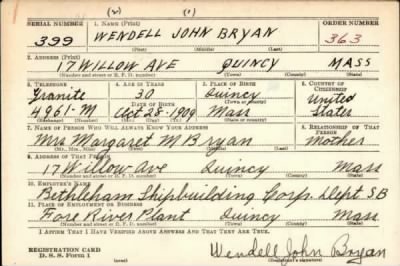 (2) (1)
SERIAL NUMBER 1. NAME (Print) ORDER NUMBER
399 WENDELL JOHN BRYAN 363
(First) (Middle) (Last)
2. ADDRESS (Print)
17 WILLOW AVE QUINCY MASS
(Number and street or R. F. D. number) (Town) (County) (State)
3. TELEPHONE 4. AGE IN YEARS 5. PLACE OF BIRTH 6. COUNTRY OF CITIZENSHIP
Granite 30 Quincy United
DATE OF BIRTH (Town or county)
4961-M Oct 28-1909 Mass States
(Exchange) (Number) (Mo.) (Day) (Yr.) (State or country)
7. NAME OF PERSON WHO WILL ALWAYS KNOW YOUR ADDRESS 8. RELATIONSHIP OF THAT PERSON
Mrs Margaret M Bryan Mother
(Mr., Mrs., Miss) (First) (Middle) (Last)
9. ADDRESS OF THAT PERSON
17 Willow Ave Quincy Mass
(Number and street or R. F. D. number) (Town) (County) (State)
10. EMPLOYER'S NAME
Bethleham Shipbuilding Corp. Dept SB
11. PLACE OF EMPLOYMENT OR BUSINESS
Fore River Plant Quincy Mass
(Number and street or R. F. D. number) (Town) (County) (State)
I AFFIRM THAT I HAVE VERIFIED ABOVE ANSWERS AND THAT THEY ARE TRUE.
REGISTRATION CARD
D. S. S. Form 1
Wendell John Bryan